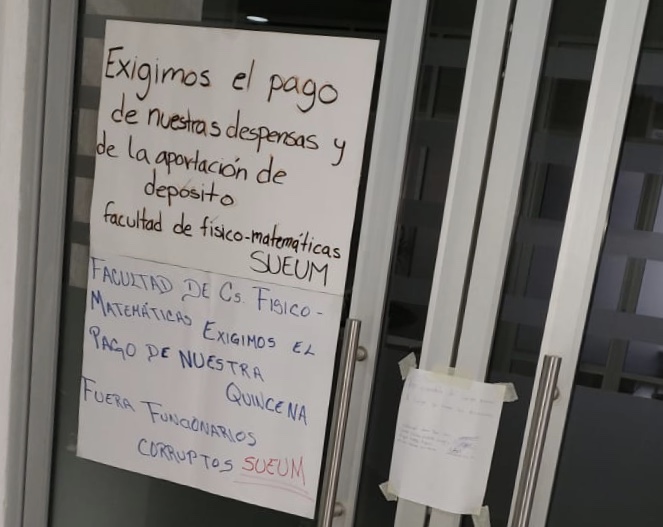 Exigimos el pago
de nuestras despensas y
de la aportación de
depósito
facultad de físico-matemáticas
SUEUM
FACULTAD DE Cs. FISICO-
MATEMÁTICAS EXIGIMOS EL
PAGO DE NUESTRA
QUINCENA
FUERA FUNCIONARIOS
CORRUPTOS SUEUM